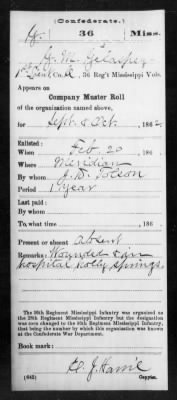 (Confederate.)
G | 36 | Miss.
36 Reg't Mississippi Vols.
Appears on
Company Muster Roll
of the organization named above,
for Sept & Oct, 1862.
Enlisted:
When Feb 20, 186
Where Meridian
By whom
Period 1 year
Last paid:
By whom
To what time , 186
Present or absent Absent
Remarks: Wounded & in
hospital Holly Springs.
The 36th Regiment Mississippi Infantry was organized as
the 28th Regiment Mississippi Infantry but the designation
was soon changed to the 36th Regiment Mississippi Infantry,
that being the number by which this organization was known
at the Confederate War Department.
Book mark:
(642)
Copyist.